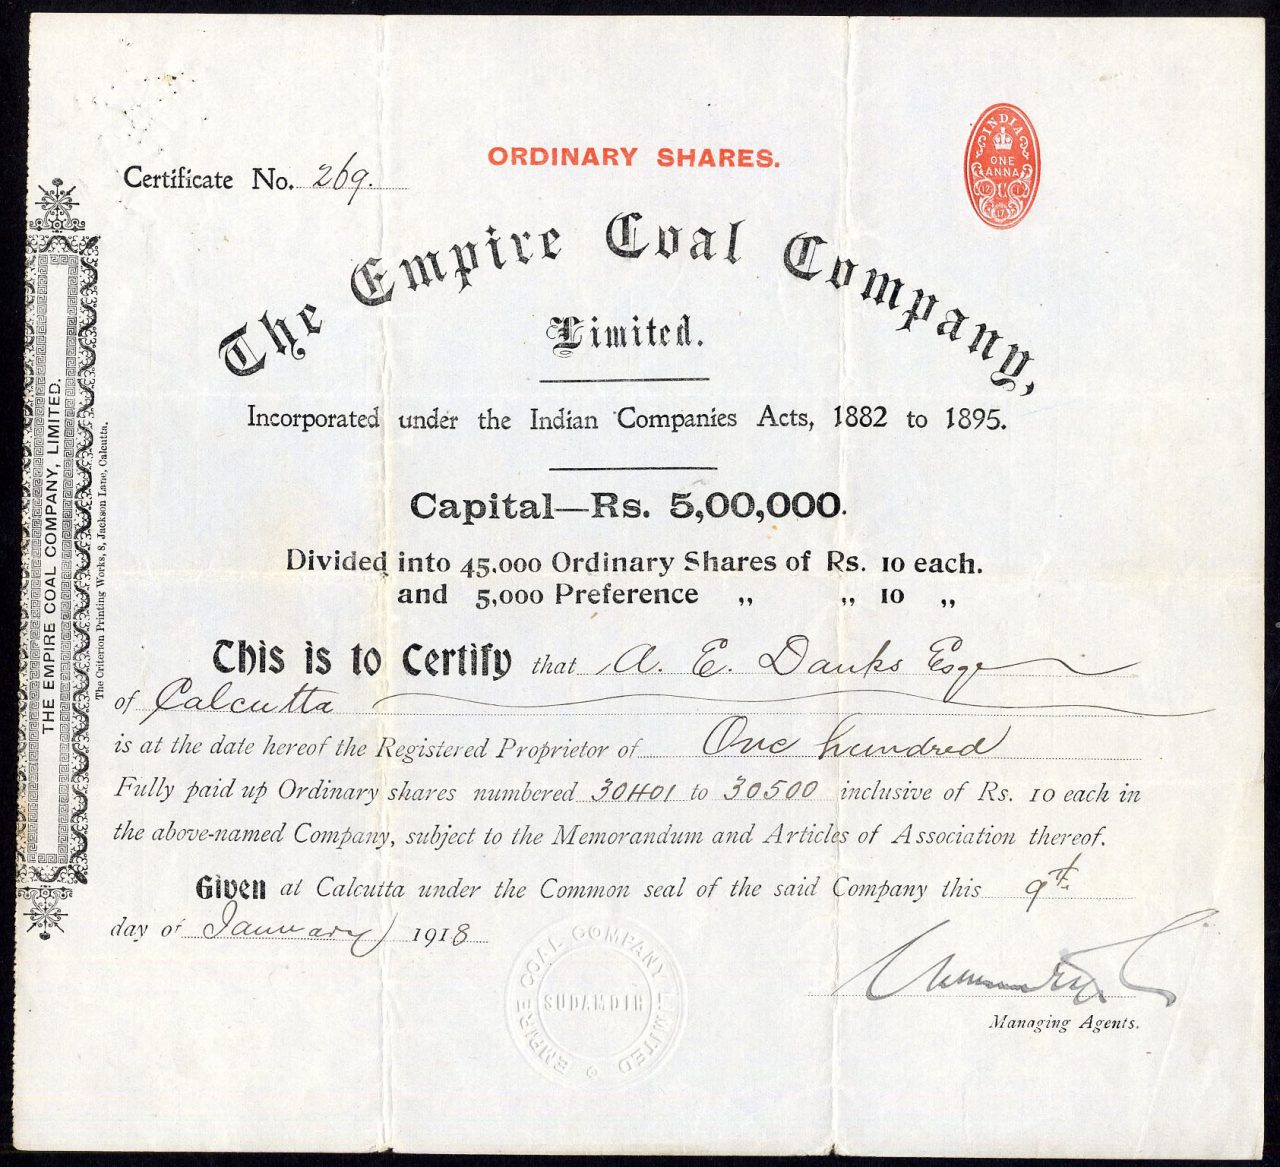 ORDINARY SHARES.
INDIA
ONE
ANNA
Certificate No. 269.
The Empire Coal Company,
Limited.
Incorporated under the Indian Companies Acts, 1882 to 1895.
Capital—Rs. 5,00,000.
Divided into 45,000 Ordinary Shares of Rs. 10 each.
and 5,000 Preference „ „ 10 „
This is to Certify that A. E. Danks Esqr
of Calcutta
is at the date hereof the Registered Proprietor of One hundred
Fully paid up Ordinary shares numbered 30401 to 30500 inclusive of Rs. 10 each in
the above-named Company, subject to the Memorandum and Articles of Association thereof.
Given at Calcutta under the Common seal of the said Company this 9th.
day of January 1918
EMPIRE COAL COMPANY LIMITED
SUDAMDIH
Managing Agents.
THE EMPIRE COAL COMPANY, LIMITED.
The Criterion Printing Works, 8, Jackson Lane, Calcutta.